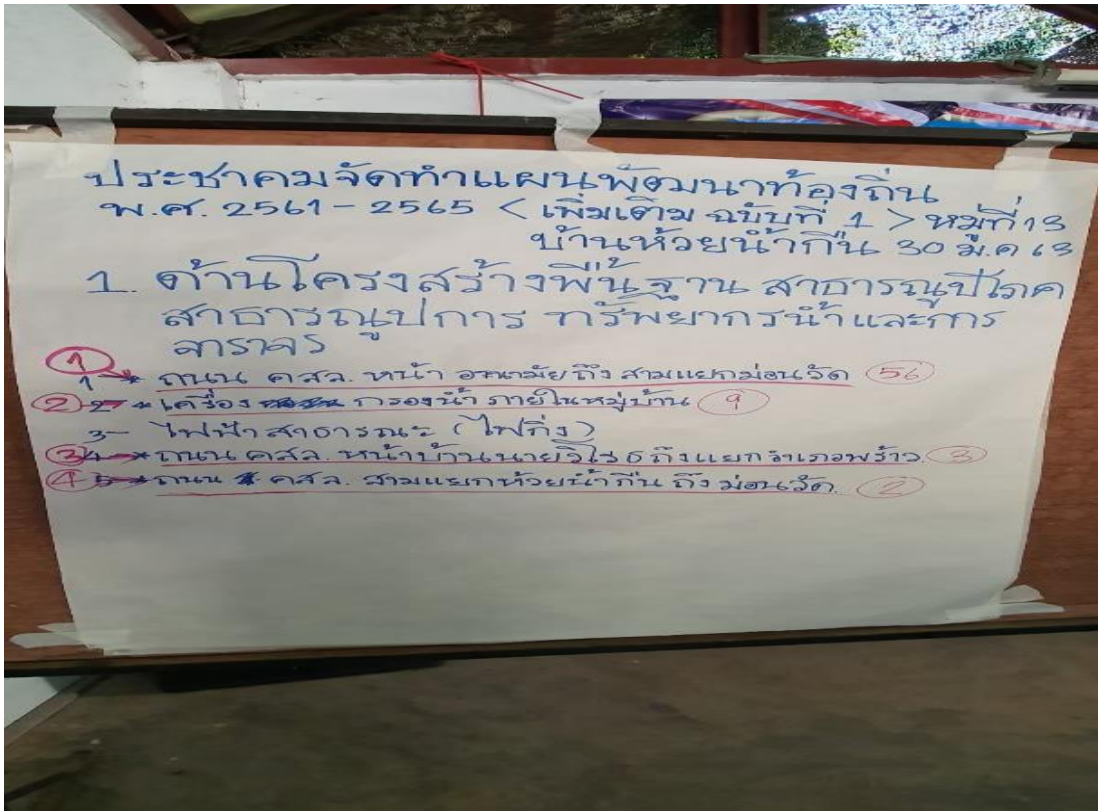 ประชาคมจัดทำแผนพัฒนาท้องถิ่น
พ.ศ. 2561 - 2565 < เพิ่มเติม ฉบับที่ 1 > หมู่ที่ 13
บ้านห้วยน้ำกืน 30 มี.ค 63
1. ด้านโครงสร้างพื้นฐาน สาธารณูปโภค
สาธารณูปการ ทรัพยากรน้ำและการ
จราจร
① 1 * ถนน คสล. หน้า อนามัย ถึง สามแยกม่อนวัด 56
② 2 * เครื่อง กรองน้ำ ภายในหมู่บ้าน 9
3 - ไฟฟ้าสาธารณะ (ไฟกิ่ง)
③ 4 * ถนน คสล. หน้าบ้านนาย ถึงแยก 3
④ 5 * ถนน คสล. สามแยกห้วยน้ำกืน ถึง ม่อนวัด. 2